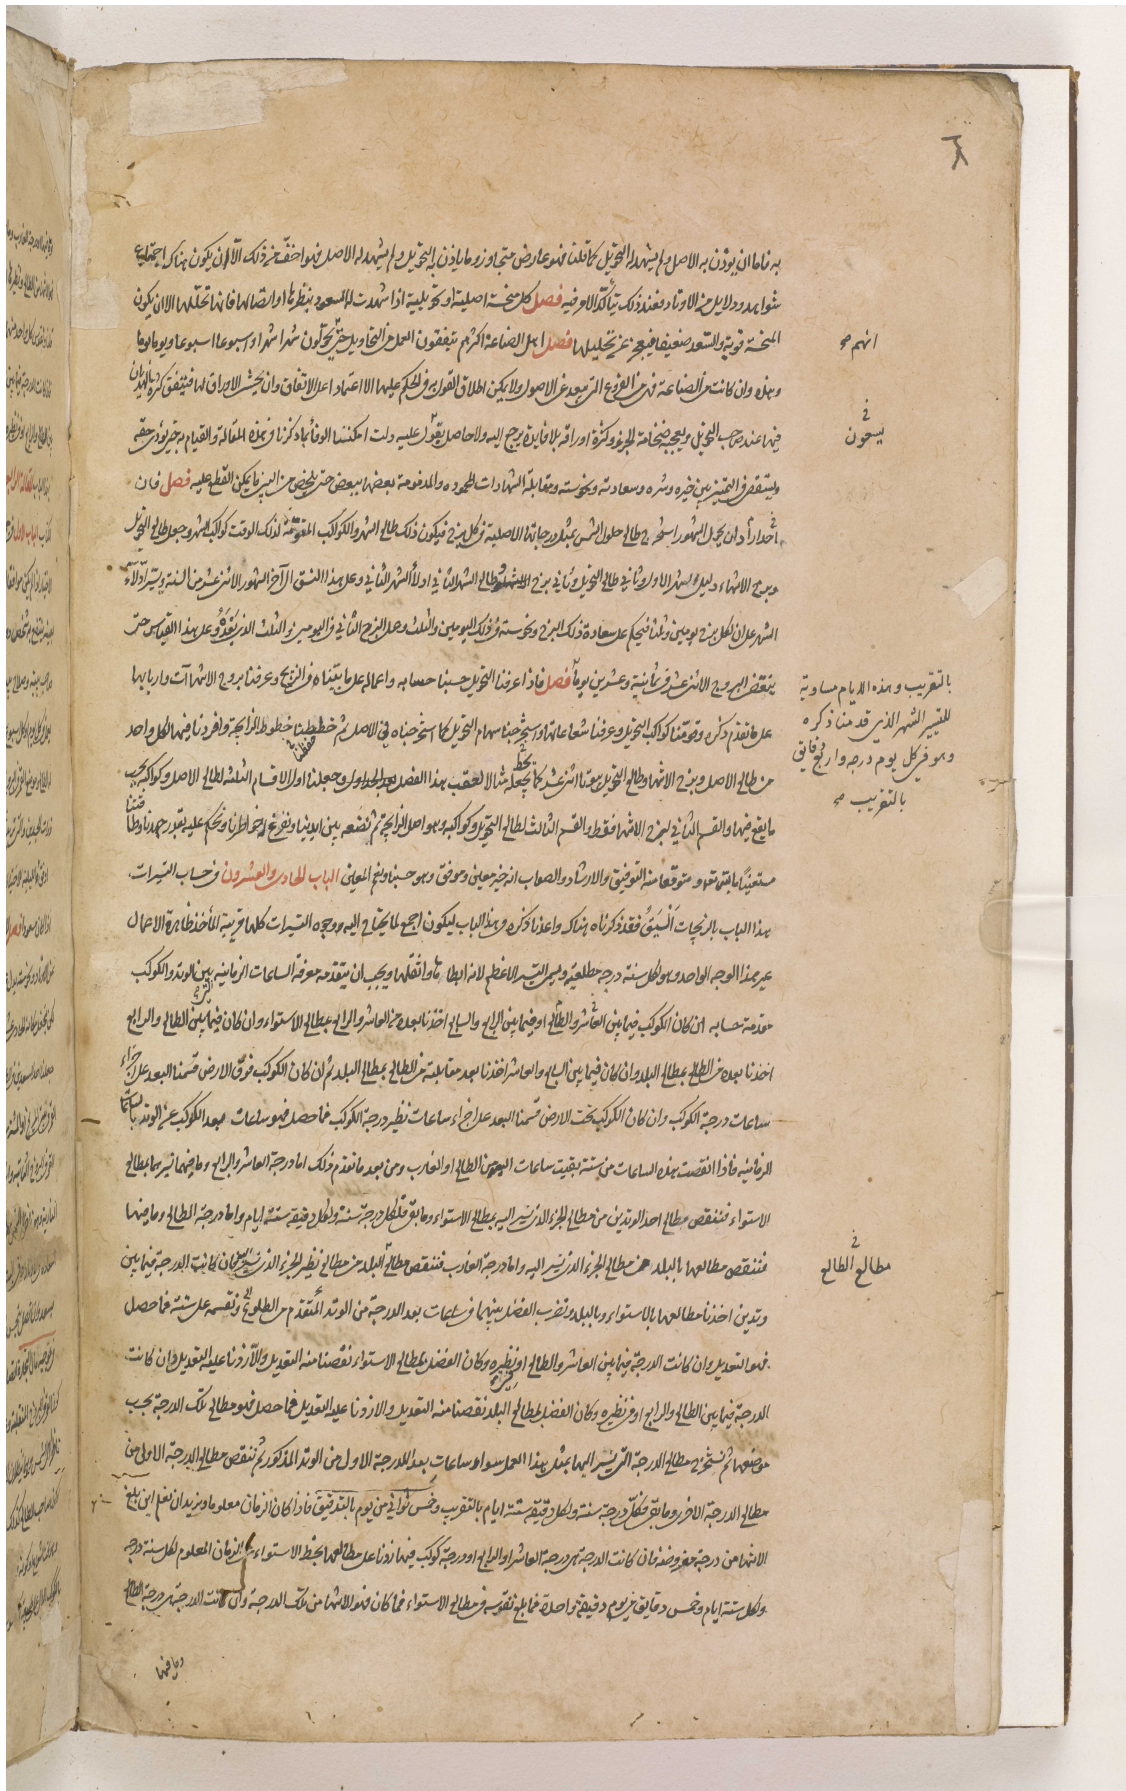 به فاما ان يوذن به الاصل ولم يشهد له التحويل كما قلنا فهو عارض متجاوز وما ياذن به التحويل ولم يشهد له الاصل فهو اخف من ذلك الا ان يكون هناك اجتماع
شواهد ودلايل من الاوتاد فعند ذلك يتاكد الامر فيه فصل كل منحسة اصلية او تحويلية اذا شهدت له السعود بنظرها او اتصالها فانها تحللها الا ان يكون
المنحسة قوية والسعد ضعيفا فيعجز عن تحليلها فصل اهل الصناعة اكثرهم يتفقون العمل في التحاويل حتى يحولون شهرا شهرا واسبوعا اسبوعا ويوما يوما
انهم صح
وهذه وان كانت من الصناعة فهي من الفروع التي تبعد عن الاصول ولا يمكن اطلاق القول بها في الحكم عليها الا اعتمادا على الاتفاق وان يحشى الاوراق لها فيتفق كثرة الهذيان
فيها عند صاحب التحويل ويعجبه ضخامة الجزء وكثرة اوراقه بلا فايدة يرجع اليه ولا حاصل يعول عليه ولما امكننا الوفا بما ذكرنا في هذه المقالة والقيام به حتى يودى حقه
يسحون
ويستقصى في التمييز بين خيره وشره وسعادته ونحوسته ومقابلة الشهادات المحموده والمذمومة بعضها ببعض حتى يلخص من البين ما يمكن القطع عليه فصل فان
اختار او اراد ان يحول الشهور استخرج طالع حلول الشمس بمثل درجاتها الاصلية في كل برج فيكون ذلك طالع الشهر والكواكب المقومة لذلك الوقت كواكب الشهر وجعل طالع التحويل
وبرج الانتهاء دليل الشهر الاول وثاني طالع التحويل وثاني برج الانتهاء وطالع الشهر الثاني ادلاء الشهر الثاني وعلى هذا النسق الى آخر الشهور الاثنى عشر من السنة ويسير ادلاء
الشهر على ان لكل برج يومين وثلثا فيحكم على سعادة ذلك البرج ونحوسته في ذلك اليومين والثلث وعلى البرج الثاني في اليومين والثلث الذي بعده وعلى هذا القياس حتى
ينقضى البروج الاثنى عشر في ثمانية وعشرين يوما فصل فاذا عرفنا التحويل حسبنا حسابه واعماله على ما بيناه في الزيج وعرفنا بروج الانتهاآت واربابها
بالتقريب وهذه الايام مساوية
للتسيير الشهر الذي قدمنا ذكره
وهو في كل يوم درجة واربع دقايق
بالتقريب صح
على ما تقدم ذكره وقومنا كواكب التحويل وعرفنا شعاعاتها واستخرجنا سهام التحويل كما استخرجناه في الاصل ثم خططنا خطوط الزايجة وافردنا فيها لكل واحد
من طالع الاصل وبرج الانتهاء وطالع التحويل بيوتا اثنى عشر كما نجعله مثالا لعقب هذا الفصل وجعلنا اول الاقسام الثلثة لطالع الاصل وكواكبه بحسب
ما يقع فيها والقسم الثاني لبرج الانتهاء فقط والقسم الثالث لطالع التحويل وكواكبه وهو اصل الزايجة ثم نضعه بين ايدينا ونفرغ له خواطرنا ونحكم عليه بقدر جهدنا وطاقتنا
مستعينا بالله تعالى ومتوقعا منه التوفيق والارشاد والصواب انه خير معين وموفق وهو حسبنا ونعم المعين الباب الحادى والعشرون في حساب التسيرات
هذا الباب بالزيجات اليق فقد ذكرناه هناك واعدنا ذكره في هذا الباب ليكون اجمع لما يحتاج اليه ووجوه التسيرات كلها قريبة المأخذ ظاهرة الاعمال
غير هذا الوجه الواحد وهو لكل سنة درجة مطلعية ويسمى التسير الاعظم لانه ابطاها واثقلها ويجب ان يتقدمه معرفة الساعات الزمانية بين الوتد والكوكب
مقدمة حسابه ان كان الكوكب فيما بين العاشر والطالع او فيما بين الرابع والسابع اخذنا بعده من العاشر والرابع بمطالع الاستواء وان كان فيما بين الطالع والرابع
اخذنا بعده من الطالع بمطالع البلد وان كان فيما بين السابع والعاشر اخذنا بعد مقابلته من الطالع بمطالع البلد ثم ان كان الكوكب فوق الارض قسمنا البعد على اجزاء
ساعات درجة الكوكب وان كان الكوكب تحت الارض قسمنا البعد على اجزاء ساعات نظير درجة الكوكب فما حصل فهو ساعات بعد الكوكب عن الوتد بالساعات
الزمانية فاذا انقصت هذه الساعات من ستة بقيت ساعات البعد من الطالع او الغارب ومن بعد ما تقدم ذلك اما درجة العاشر والرابع وما فيهما تسيرهما بمطالع
الاستواء فننقص مطالع احد الوتدين من مطالع الجزء الذي نسير اليه بمطالع الاستواء وما بقى فلكل درجة سنة ولكل دقيقة ستة ايام واما درجة الطالع وما فيها
فننقص مطالعها بالبلد من مطالع الجزء الذي نسير اليه واما درجة الغارب فننقص مطالع البلد من مطالع نظير الجزء الذي نسير اليه فان كانت الدرجة فيما بين
مطالع الطالع
وتدين اخذنا مطالعها بالاستواء وبالبلد ونضرب الفضل بينهما في ساعات بعد الدرجة من الوتد المتقدم من الطلوع ونقسمه على ستة فما حصل
فهو التعديل وان كانت الدرجة فيما بين العاشر والطالع او نظيره وكان الفضل لمطالع الاستواء نقصنا منه التعديل والا زدنا عليه التعديل وان كانت
الدرجة فيما بين الطالع والرابع او في نظيره وكان الفضل لمطالع البلد نقصنا منه التعديل والا زدنا عليه التعديل فما حصل فهو مطالع تلك الدرجة بحسب
موضعها ثم نستخرج مطالع الدرجة التى نسير اليها بمثل هذا العمل سواء وساعات بعد الدرجة الاولى من الوتد المذكور ثم ننقص مطالع الدرجة الاولى من
مطالع الدرجة الاخرى وما بقى فلكل درجة سنة ولكل دقيقة ستة ايام بالتقريب وخمس ثواني من يوم بالتدقيق فاذا كان الزمان معلوما ونريد ان نعلم اين بلغ
الانتهاء من درجة مفروضة فان كانت الدرجة هى درجة العاشر او الرابع او درجة كوكب فيهما زدنا على مطالعها بخط الاستواء الزمان المعلوم لكل سنة درجة
ولكل ستة ايام وخمس دقايق من يوم دقيقة واحدة فما بلغ نقوسه في مطالع الاستواء فما كان فهو الانتهاء من تلك الدرجة وان كانت الدرجة هى درجة الطالع
وما فيها